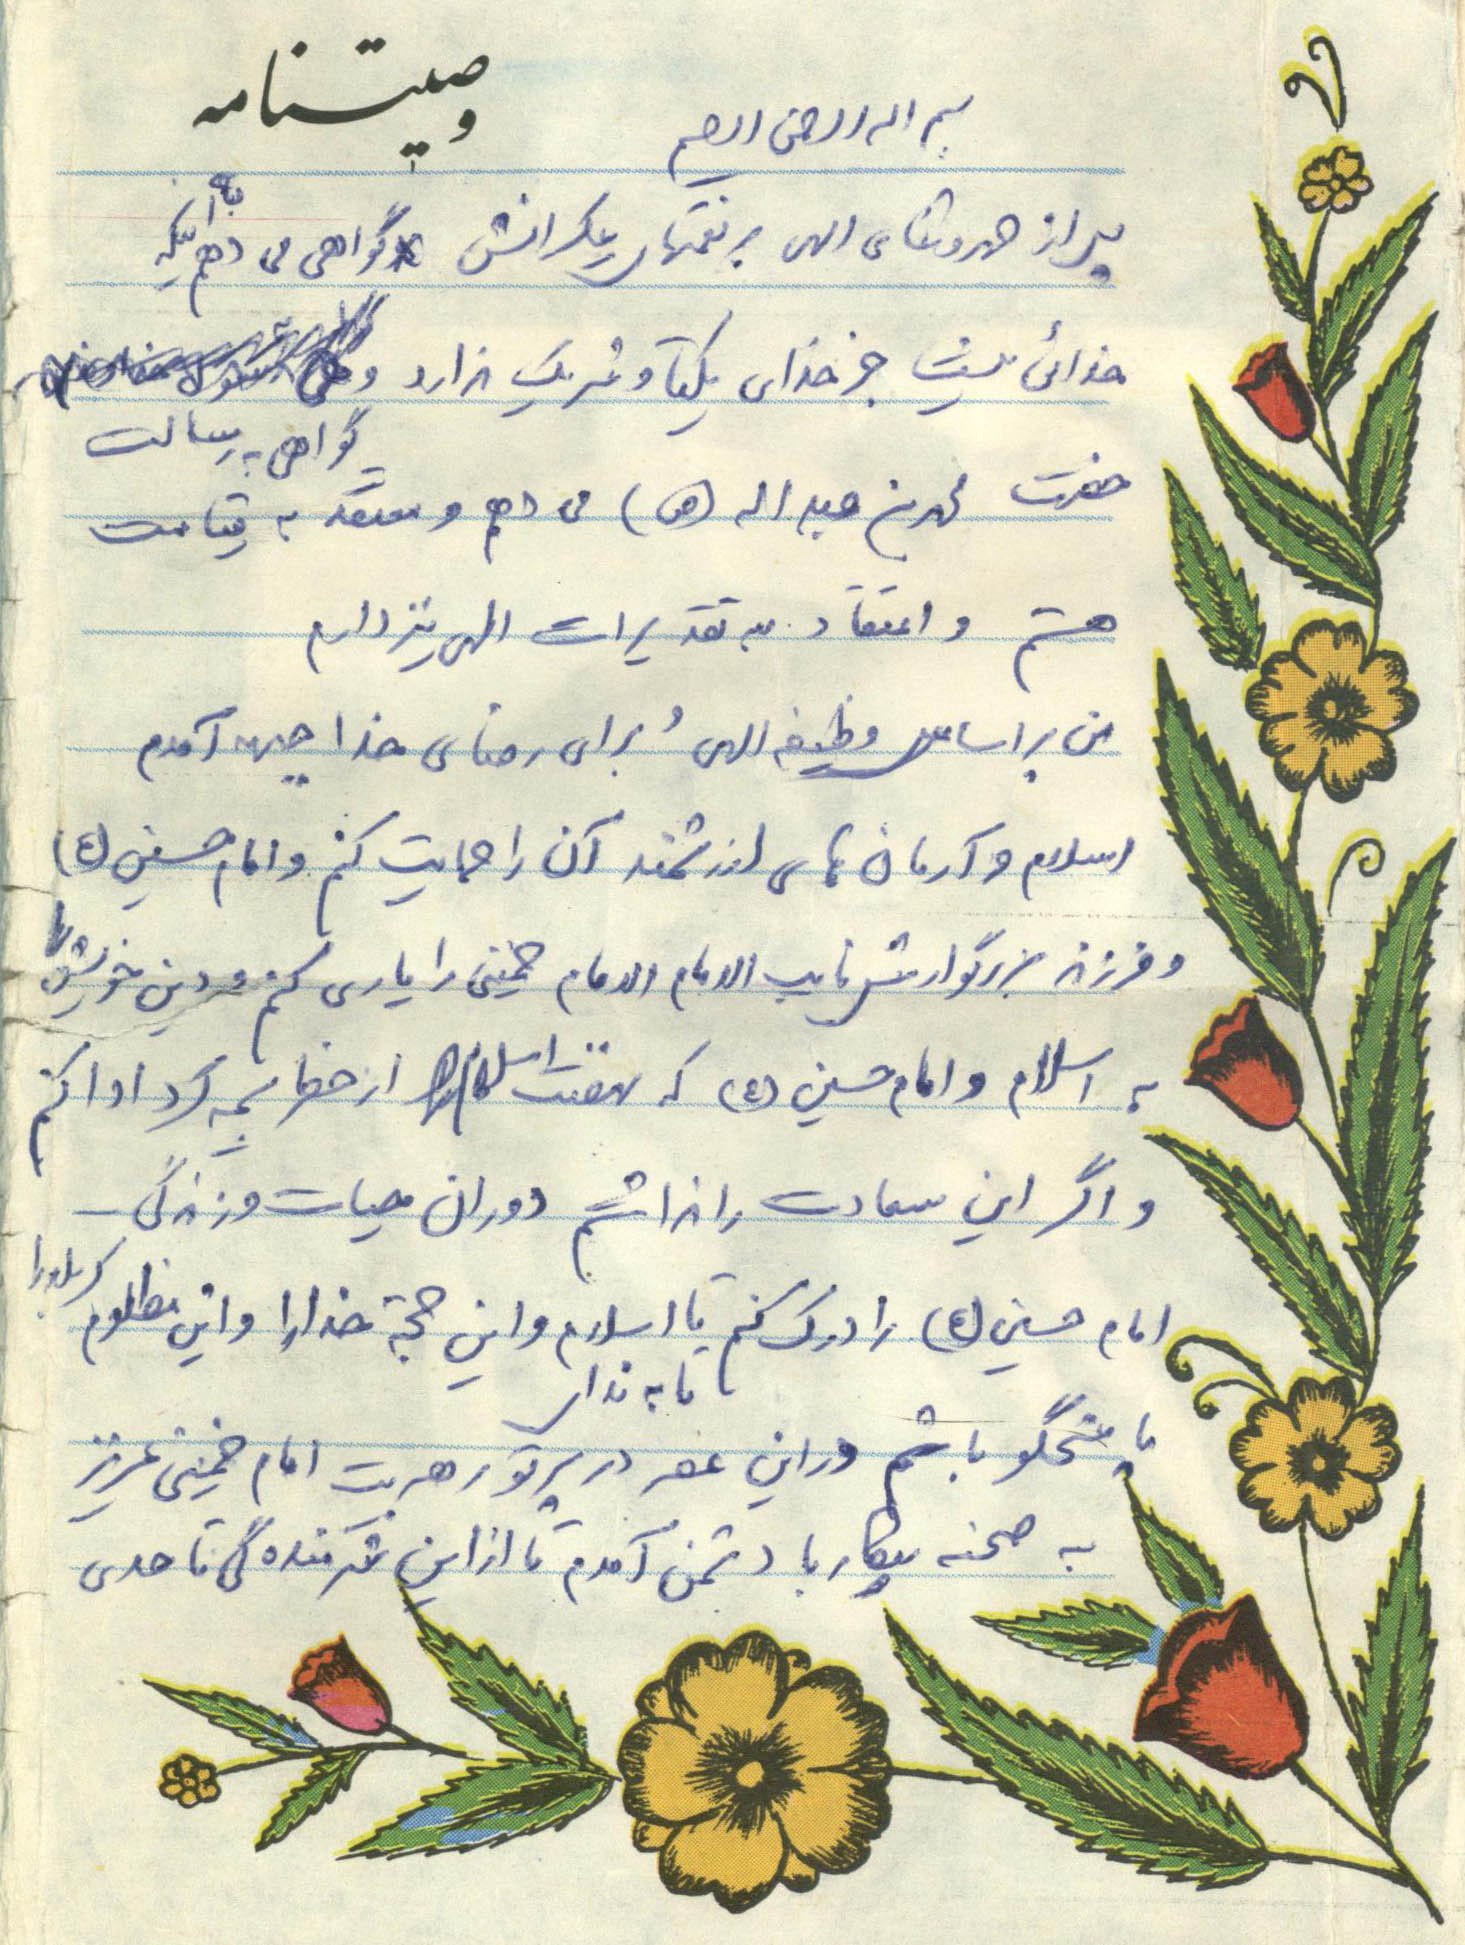 وصیتنامه
بسم اله الرحمن الرحیم
پس از حمد و ثنای الهی بر نعمتهای بیکرانش گواهی می دهم به اینکه
خدائی نیست جز خدای یکتا و شریک ندارد و
گواهی به رسالت
حضرت محمد بن عبداله (ص) می دهم و معتقد به قیامت
هستم و اعتقاد به تقدیرات الهی نیز دارم
من بر اساس وظیفه الهی و برای رضای خدا جبهه آمدم
اسلام و آرمان های ارزشمند آن را حمایت کنم و امام حسین (ع)
و فرزند بزرگوارش نایب الامام الامام خمینی را یاری کنم و دین خویش را
به اسلام و امام حسین (ع) که نهضت اسلام را از خطر بیمه کرد ادا کنم
و اگر این سعادت را نداشتم دوران حیات و زندگی
امام حسین (ع) را درک کنم تا اسلام و این حجة خدا را و این مظلوم کربلا را
تا به ندای
پاسخگو باشم در این عصر در پرتو رهبریت امام خمینی عزیز
به صحنه پیکار با دشمن آمدم تا از این شرمنده گی تا حدی